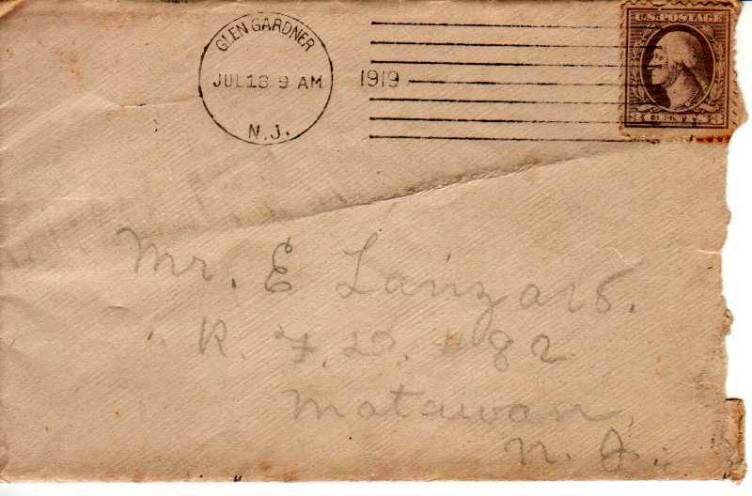 GLEN GARDNER
JUL 18 9 AM
N.J.
1919
U.S. POSTAGE
3 CENTS 3
Mr. E
R. F. D. # 82
Matawan,
N. J.